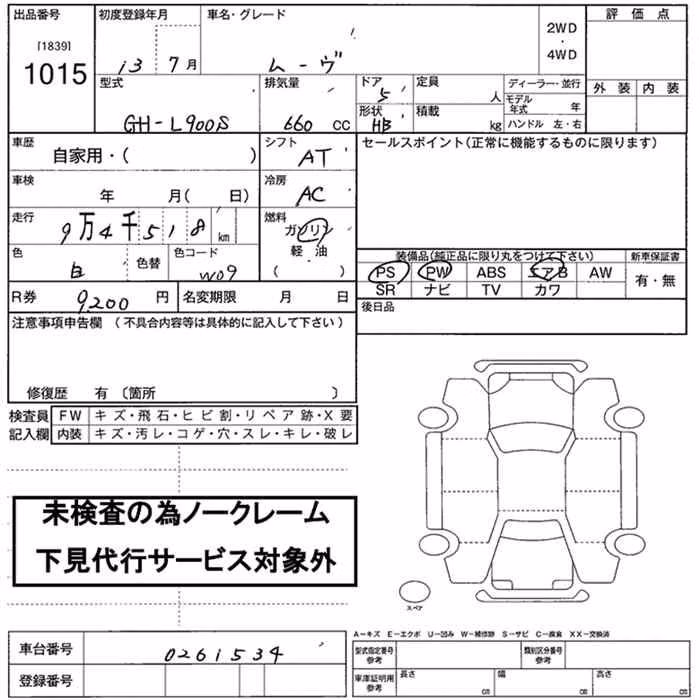 出品番号 初度登録年月 車名・グレード 2WD・4WD 評価点
[1839]
1015 13 7月 ムーヴ
型式 排気量 ドア 5 定員 人 ディーラー・並行 外装 内装
GH-L900S 660 CC 形状 HB 積載 kg モデル年式 年
ハンドル 左・右
車歴 自家用・( ) シフト AT セールスポイント(正常に機能するものに限ります)
車検 年 月( 日) 冷房 AC
走行 9万4千518km 燃料 ガソリン
軽・油
( )
色 白 色替 色コード W09
装備品(純正品に限り丸をつけて下さい) 新車保証書
PS PW ABS エアB AW 有・無
SR ナビ TV カワ
R券 9200円 名変期限 月 日 後日品
注意事項申告欄 (不具合内容等は具体的に記入して下さい)
修復歴 有 〔箇所 〕
検査員 FW キズ・飛石・ヒビ割・リペア跡・X要
記入欄 内装 キズ・汚レ・コゲ・穴・スレ・キレ・破レ
未検査の為ノークレーム
下見代行サービス対象外
スペア
A−キズ E−エクボ U−凹み W−補修跡 S−サビ C−腐食 XX−交換済
車台番号 0261534 型式指定番号 参考 類別区分番号 参考
登録番号 車庫証明用 参考 長さ cm 幅 cm 高さ cm